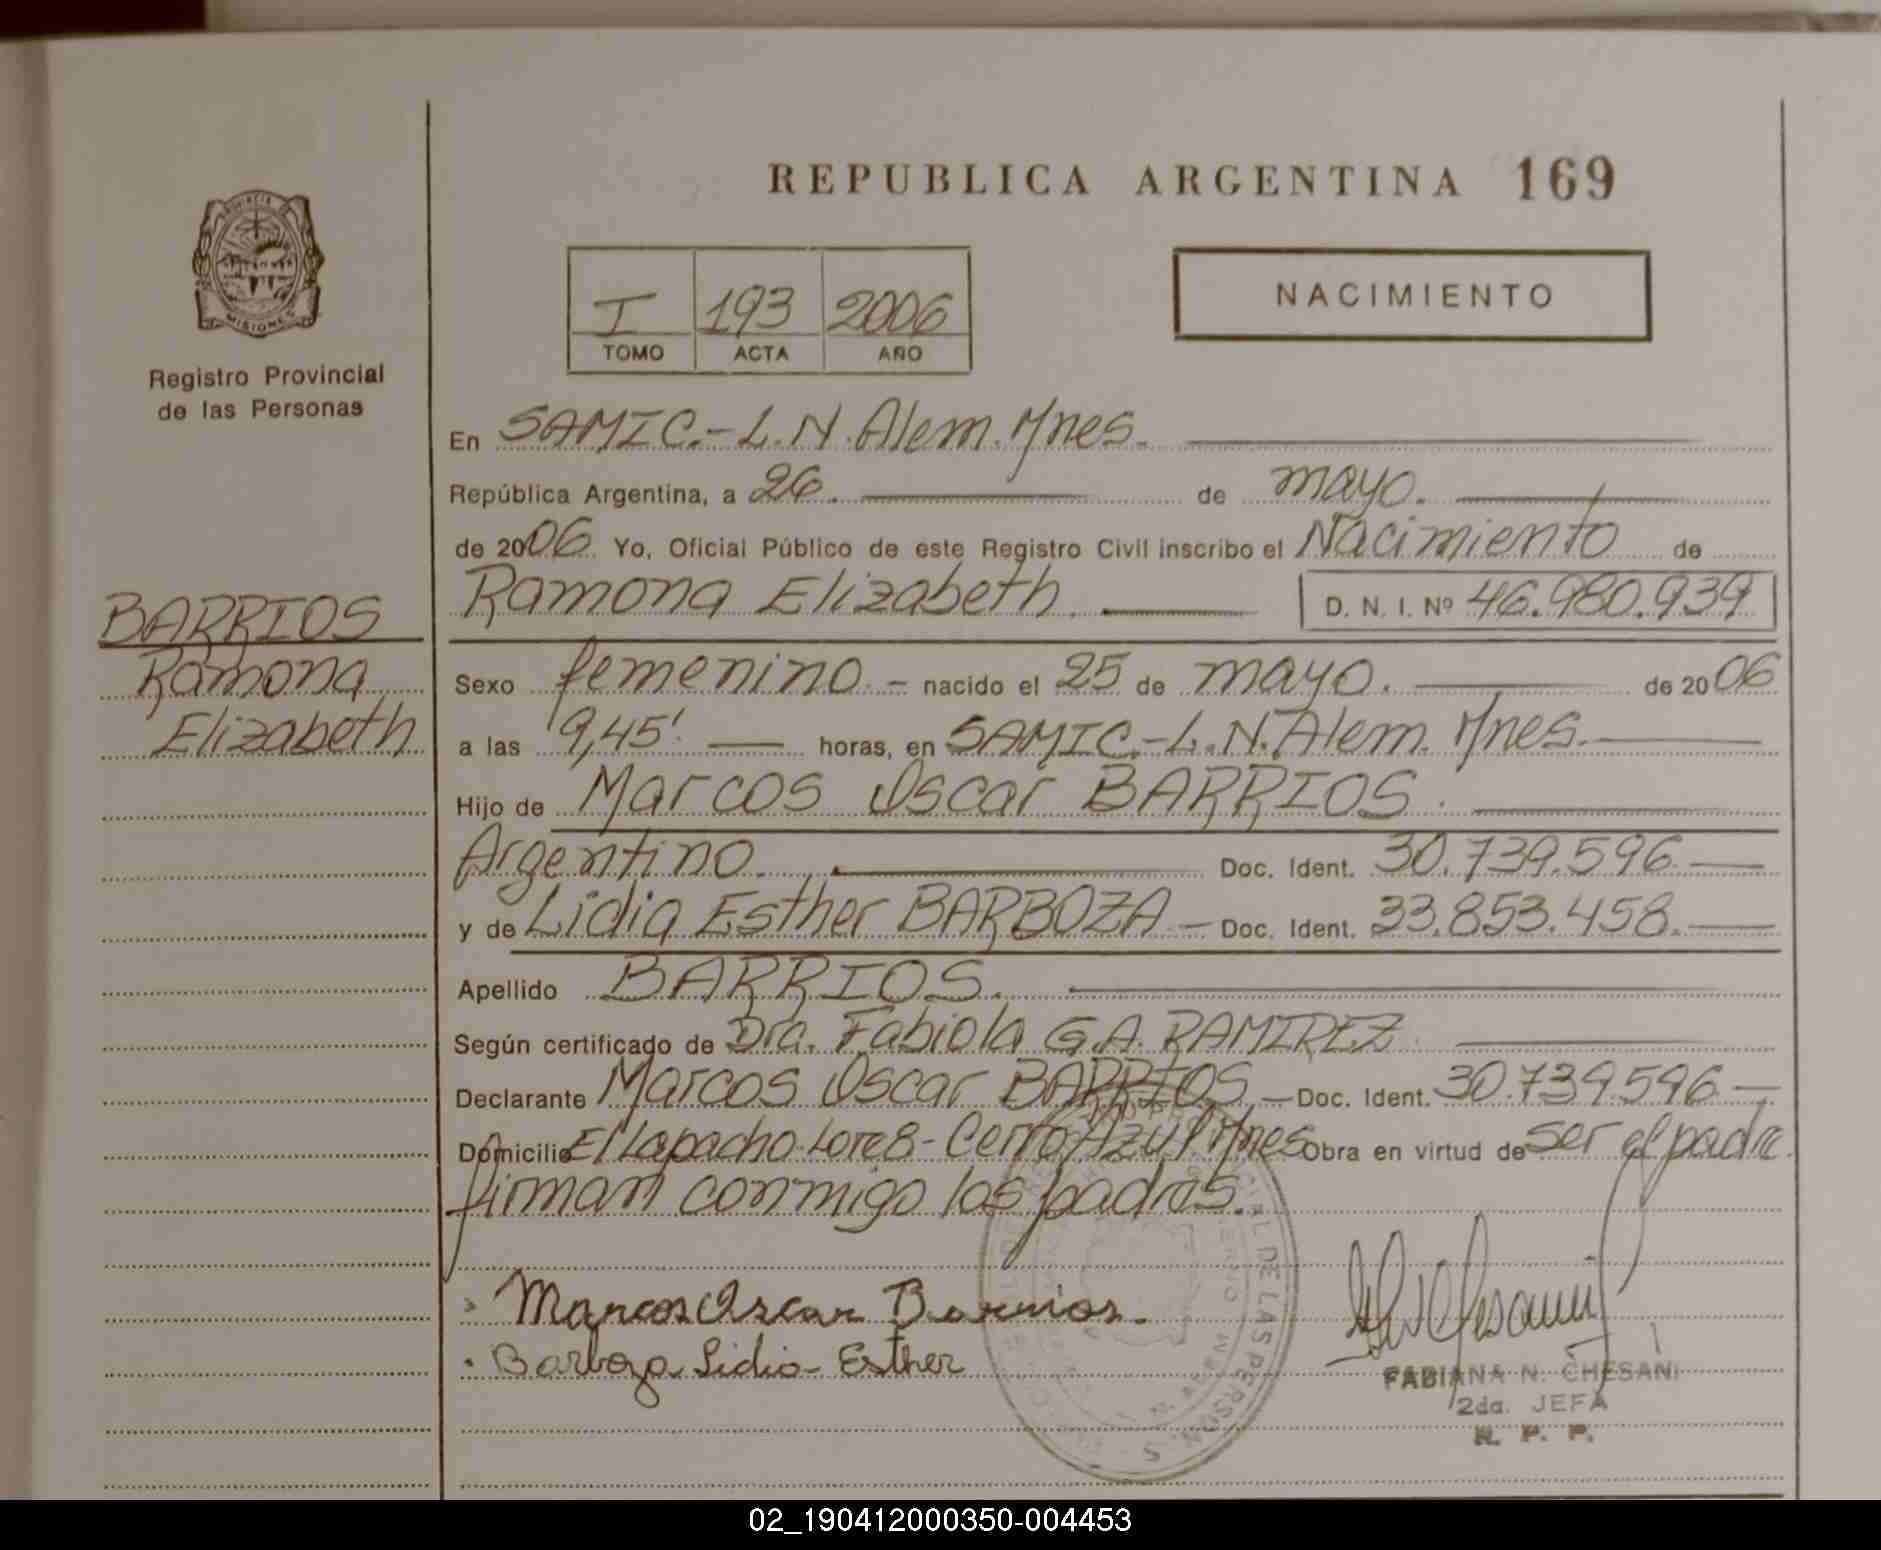 REPUBLICA ARGENTINA 169
PROVINCIA DE
MISIONES
Registro Provincial
de las Personas
I 193 2006
TOMO ACTA AÑO
NACIMIENTO
En SAMIC.- L.N. Alem. Mnes.
República Argentina, a 26. de mayo.
de 2006 Yo, Oficial Público de este Registro Civil inscribo el Nacimiento de
Ramona Elizabeth D. N. I. Nº 46.980.939
BARRIOS
Ramona
Elizabeth
Sexo femenino.- nacido el 25 de mayo. de 2006
a las 9,45'. horas, en SAMIC.- L.N. Alem. Mnes.
Hijo de Marcos Oscar BARRIOS.
Argentino. Doc. Ident. 30.739.596
y de Lidia Esther BARBOZA - Doc. Ident. 33.853.458.
Apellido BARRIOS.
Según certificado de Dra. Fabiola G.A. RAMIREZ
Declarante Marcos Oscar BARRIOS - Doc. Ident. 30.739.596
Domicilio El Lapacho. Lote 8- Cerro Azul Mnes Obra en virtud de ser el padre.
firman conmigo los padres.
Marcos Oscar Barrios.
Barboza Lidia- Esther
FABIANA N. CHESANI
2da. JEFA
R. P. P.
DE LAS PERSONAS
02_190412000350-004453